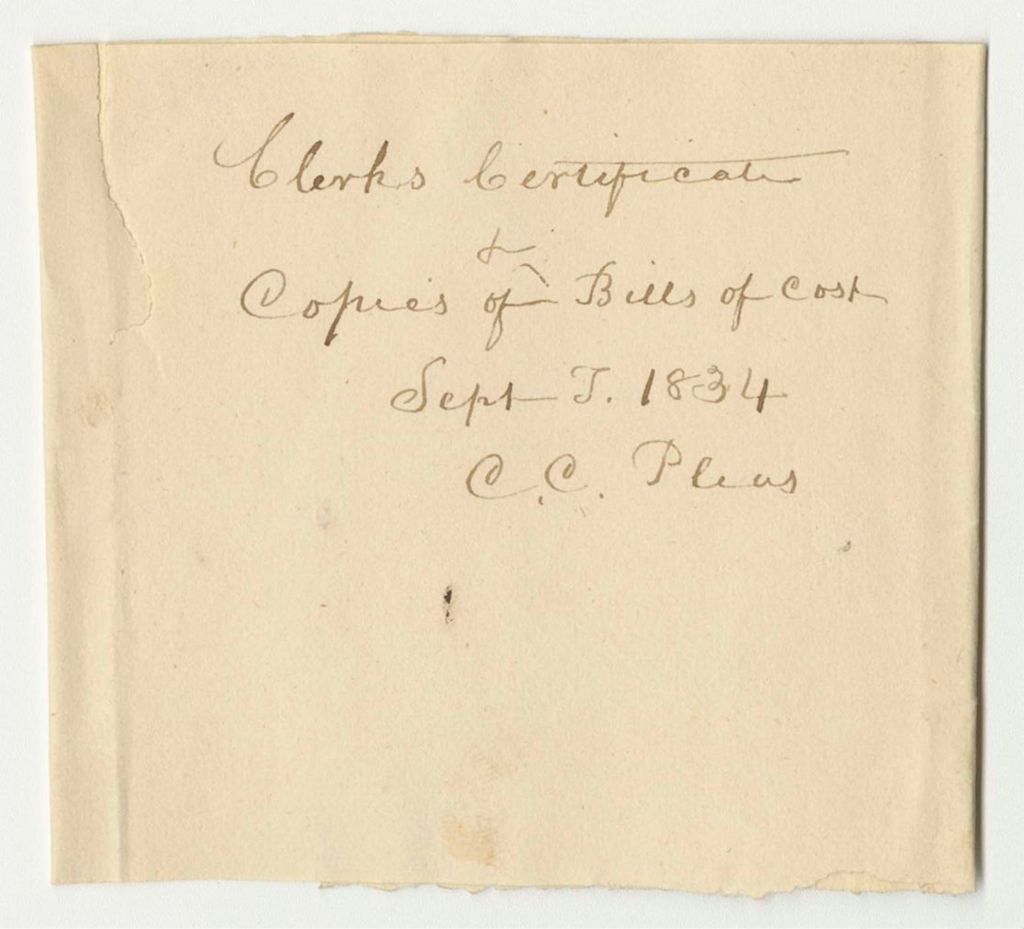 Clerks Certificate
&
Copies of Bills of Cost
Sept T. 1834
C.C. Pleas